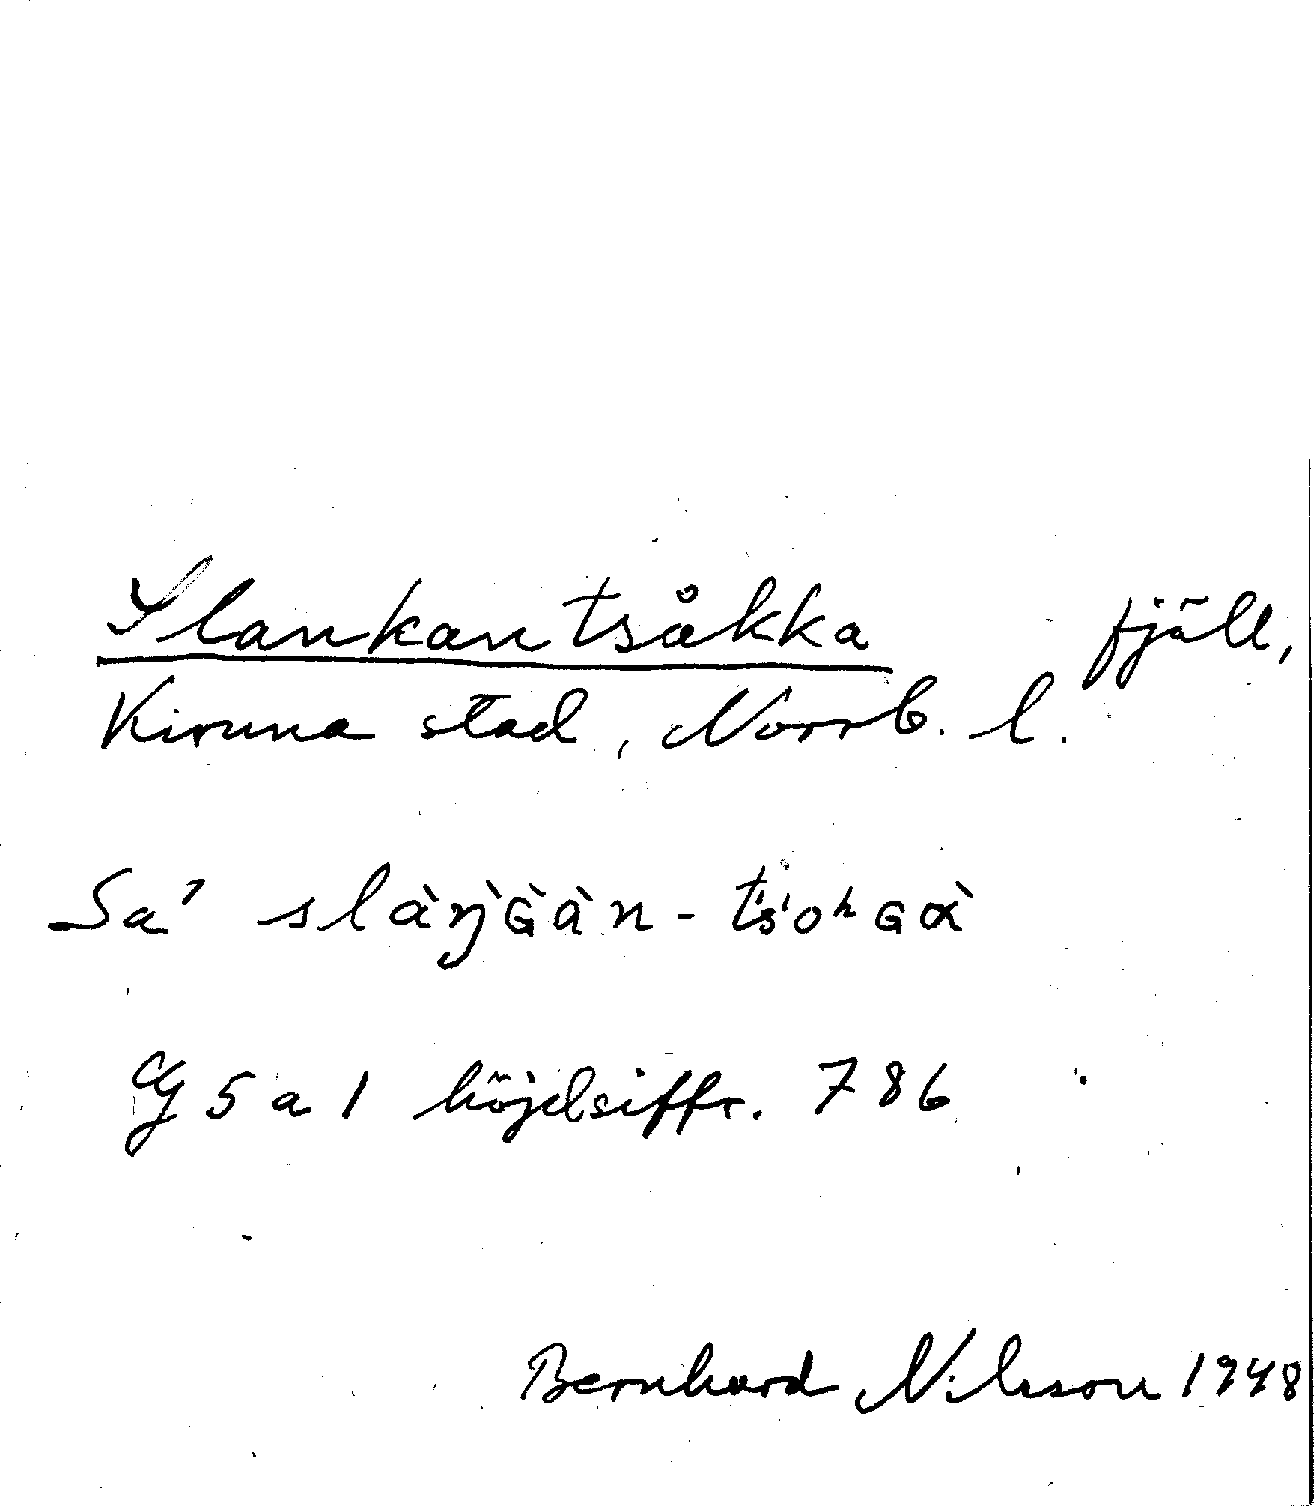 Slankantsåkka fjäll,
Kiruna stad, Norrb. l.
Sa' slàŋ̀ɢ̀àn - tśoʰɢɑ̀
G 5 a 1 höjdsiffr. 786
Bernhard Nilsson 1948